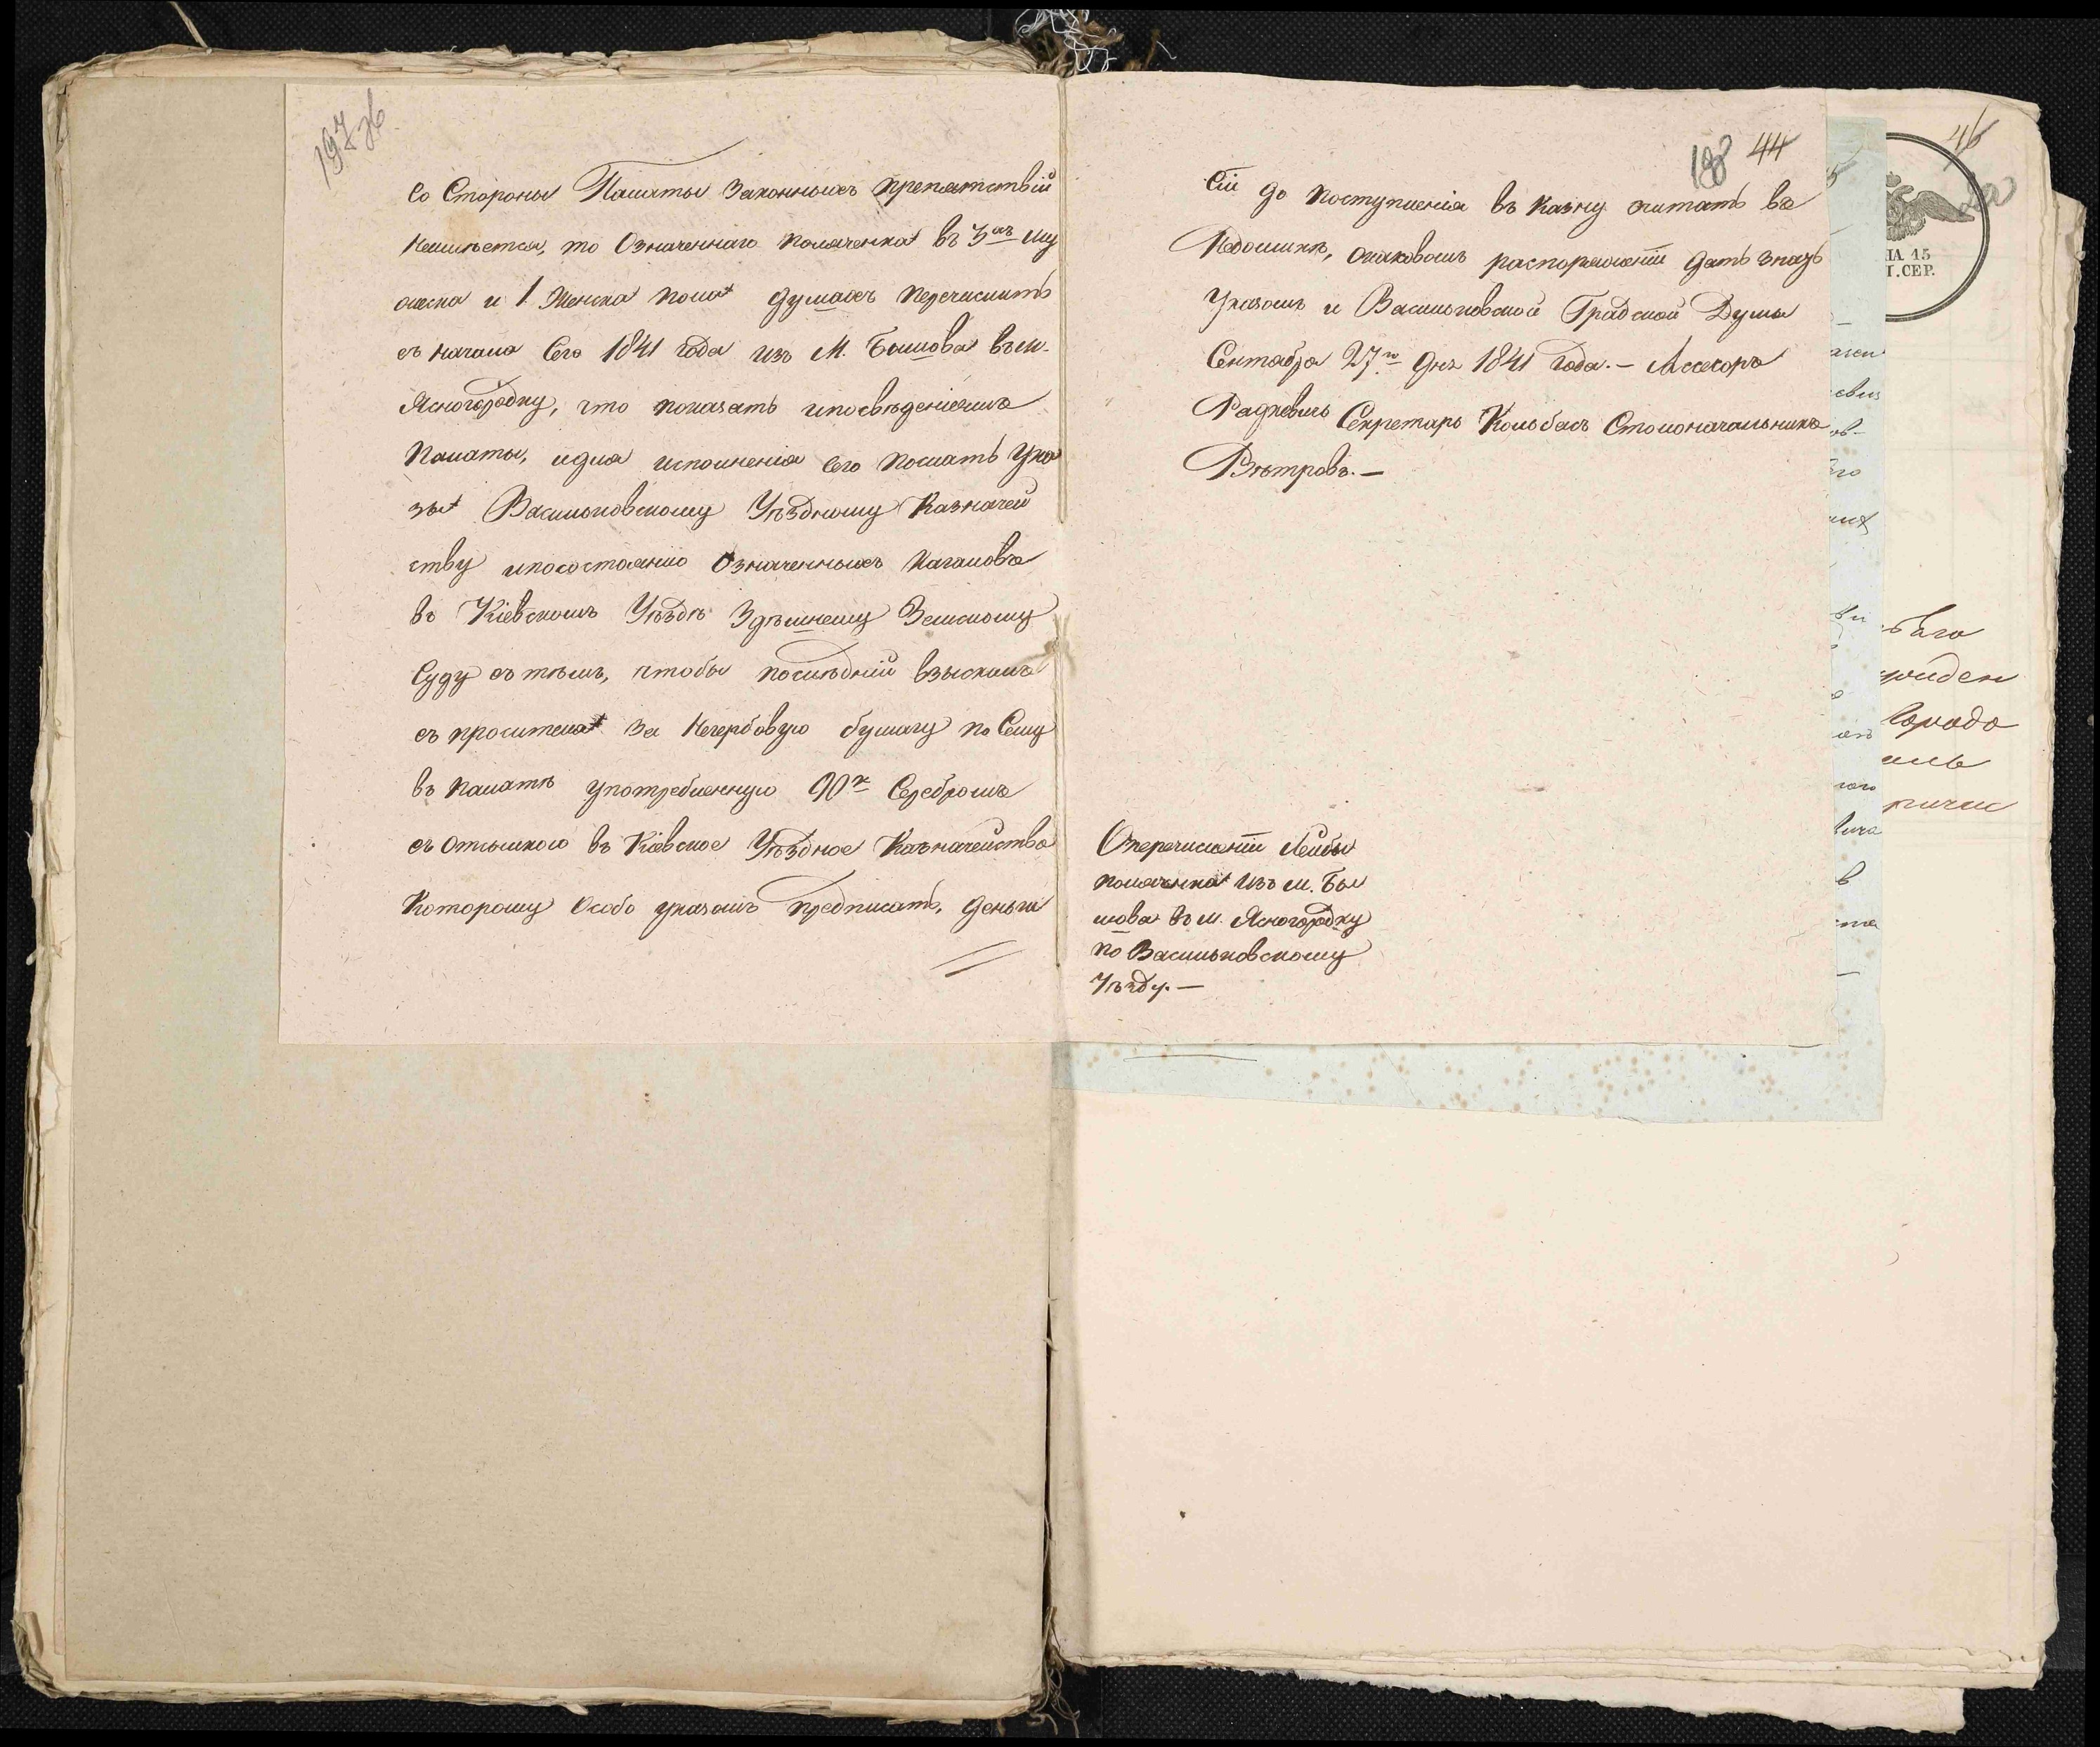 197 об
Со Стороны Палаты Законныхъ препятствій
Неимѣется, то Означеннаго Поляченка въ 3хъ му
жеска и 1 Женска пола душахъ Перечислить
съ начала Сего 1841 года изъ М. Бышова въ м.
Ясногородку, что показать и по свѣденіямъ
Палаты, и для исполненія Сего Послать Ука
зы Васильковскому Уѣздному Казначей
ству и по состоянію Означенныхъ Кагаловъ
въ Кіевскомъ Уѣздѣ Здѣшнему Земскому
Суду съ тѣмъ, чтобы послѣдній взыскалъ
съ просителя За Негербовую бумагу по Сему
въ Палатѣ употребленную 90 к Серебромъ
съ отсылкою въ Кіевское Уѣздное Казначейство
Которому Особо указомъ предписать, Деньги
188 44
Сіи до поступленія въ Казну считать въ
Недоимкѣ, о таковомъ распоряженіи дать знать
Указомъ и Васильковской Градской Думѣ
Сентября 27го дня 1841 года. — Ассесоръ
Радкевичъ Секретарь Кольбасъ Столоначальникъ
Вѣтровъ. —
О перечисленіи Лейбы
Поляченка изъ м. Бы
шова въ м. Ясногородку
по Васильковскому
Уѣзду. —
46
ЦА 15
.СЕР.
ваго